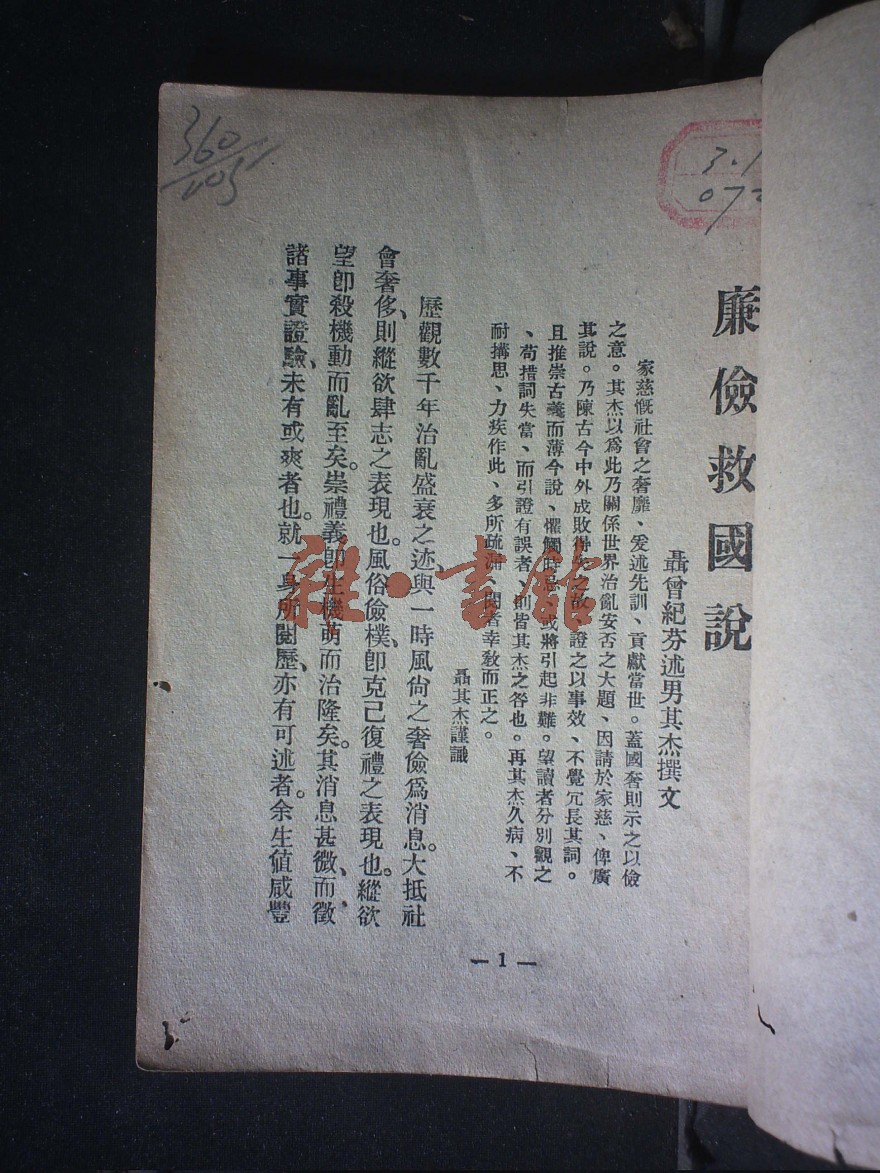 廉儉救國說
聶曾紀芬述男其杰撰文
家慈慨社會之奢靡、爰述先訓、貢獻當世。蓋國奢則示之以儉
之意。其杰以爲此乃關係世界治亂安否之大題、因請於家慈、俾廣
其說。乃陳古今中外成敗得失之故、證之以事效、不覺冗長其詞。
且推崇古義而薄今說、懼觸時忌、或將引起非難。望讀者分別觀之
、苟措詞失當、而引證有誤者、則皆其杰之咎也。再其杰久病、不
耐搆思、力疾作此、多所疏漏、閱者幸敎而正之。
聶其杰謹識
歷觀數千年治亂盛衰之迹、與一時風尙之奢儉爲消息。大抵社
會奢侈、則縱欲肆志之表現也。風俗儉樸、卽克己復禮之表現也。縱欲
望卽殺機動而亂至矣。崇禮義卽生機萌而治隆矣。其消息甚微、而徵
諸事實證驗、未有或爽者也。就一身所閱歷、亦有可述者。余生値咸豐
—1—
360
105
3.1
072
雜·書館